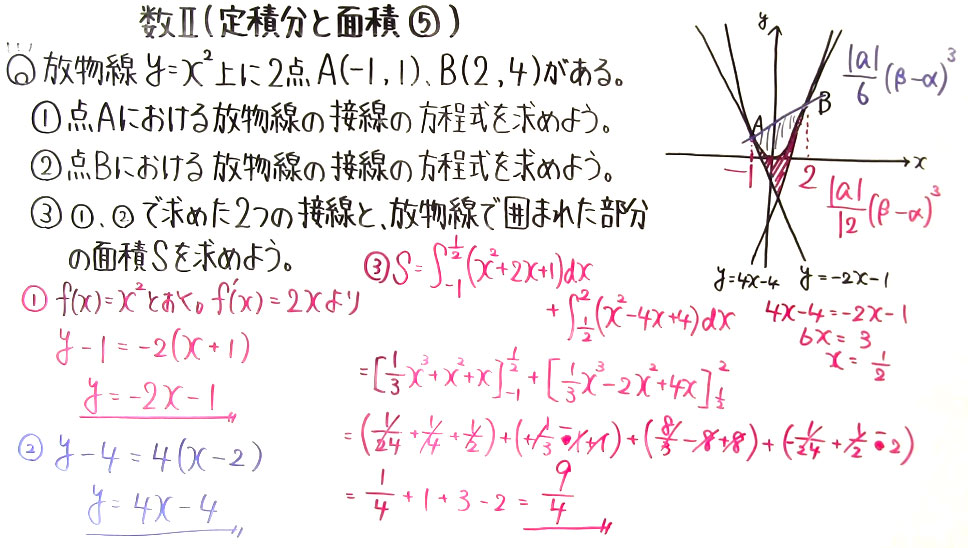 数Ⅱ(定積分と面積⑤)
◎ 放物線 y=x²上に2点A(-1,1)、B(2,4)がある。
①点Aにおける放物線の接線の方程式を求めよう。
②点Bにおける放物線の接線の方程式を求めよう。
③①、②で求めた2つの接線と、放物線で囲まれた部分
の面積Sを求めよう。
① f(x)=x²とおく。f'(x)=2xより
y-1=-2(x+1)
y=-2x-1
② y-4=4(x-2)
y=4x-4
③ S=∫_{-1}^{1/2}(x²+2x+1)dx
+∫_{1/2}^{2}(x²-4x+4)dx
=[1/3x³+x²+x]_{-1}^{1/2}+[1/3x³-2x²+4x]_{1/2}^{2}
=(1/24+1/4+1/2)+(+1/3-1+1)+(8/3-8+8)+(-1/24+1/2-2)
=1/4+1+3-2=9/4
y
A
B
x
-1
2
|a|/6(β-α)³
|a|/12(β-α)³
y=4x-4
y=-2x-1
4x-4=-2x-1
6x=3
x=1/2